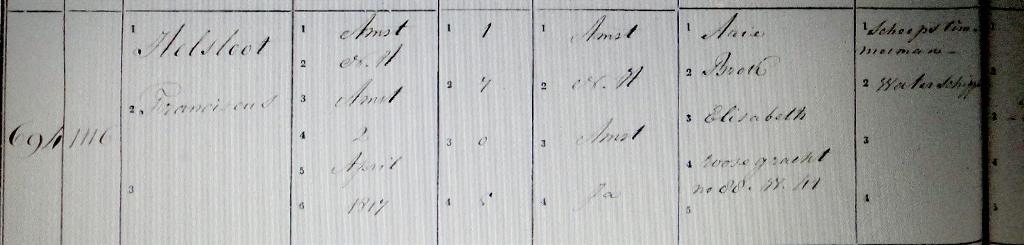 694 1116
1 Helsloot
2 Franciscus
3
1 Amst
2 N. H
3 Amst
4 2
5 April
6 1817
1 1
2 7
3 0
4 5
1 Amst
2 N. H
3 Amst
4 Ja
1 Arie
2 Brok
3 Elisabeth
4 roosegracht
no 88. W. 41
5
1 Scheepstim
merman
2 Waterschip
3
4